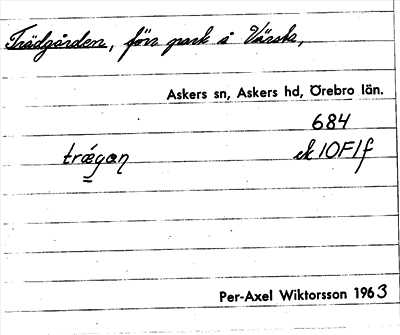 Trädgården, förr park i Värsta,
Askers sn, Askers hd, Örebro län.
684
trǽgan ek 10F1f
Per-Axel Wiktorsson 1963